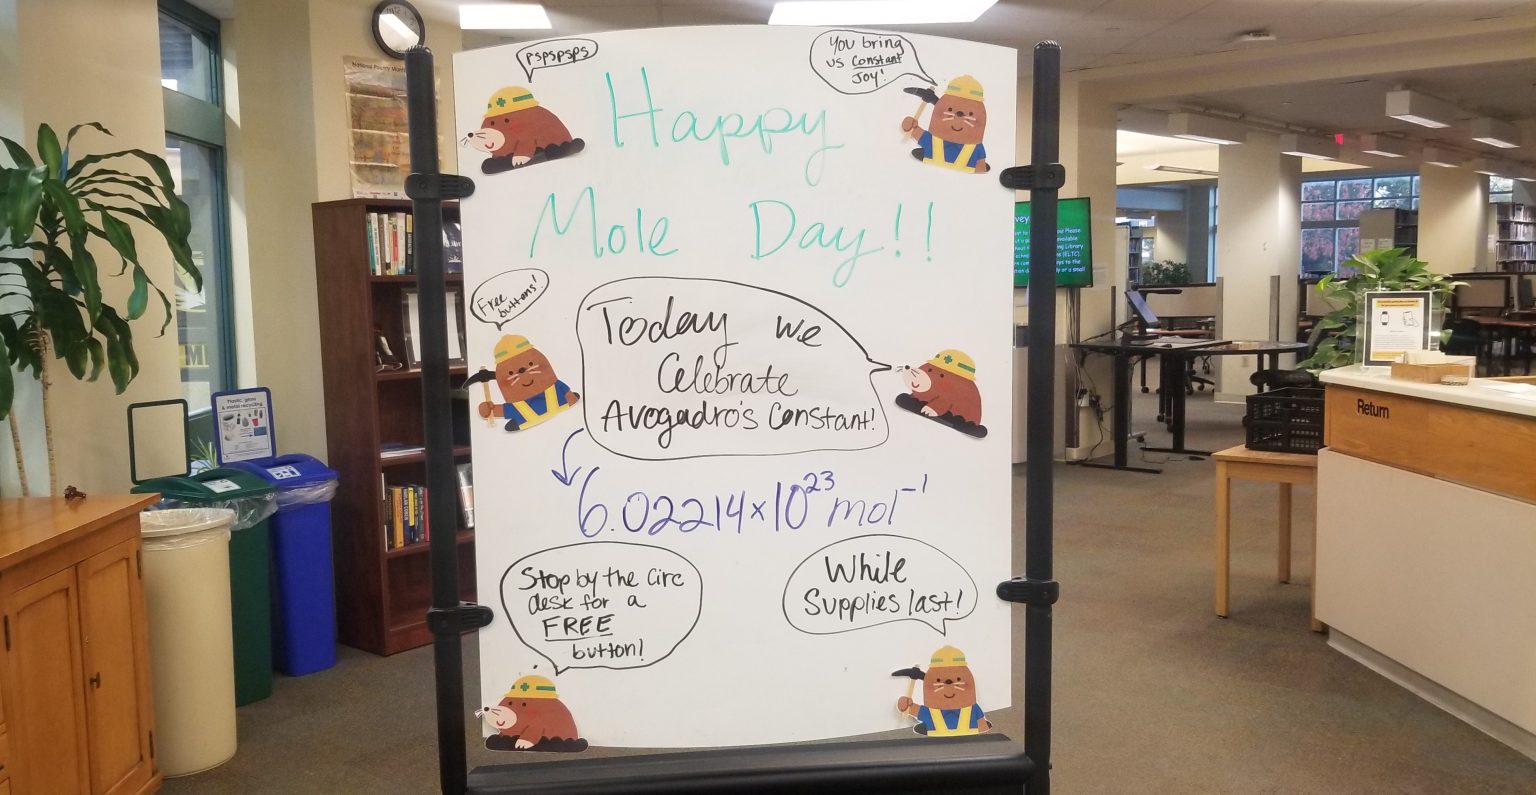 pspspsps
You bring
us constant
Joy!
Happy
Mole Day!!
Free
buttons!
Today we
Celebrate
Avogadro's Constant!
6.02214×10²³ mol⁻¹
Stop by the circ
desk for a
FREE
button!
While
Supplies last!
National Poetry Month
Plastic, glass
& metal recycling
Return